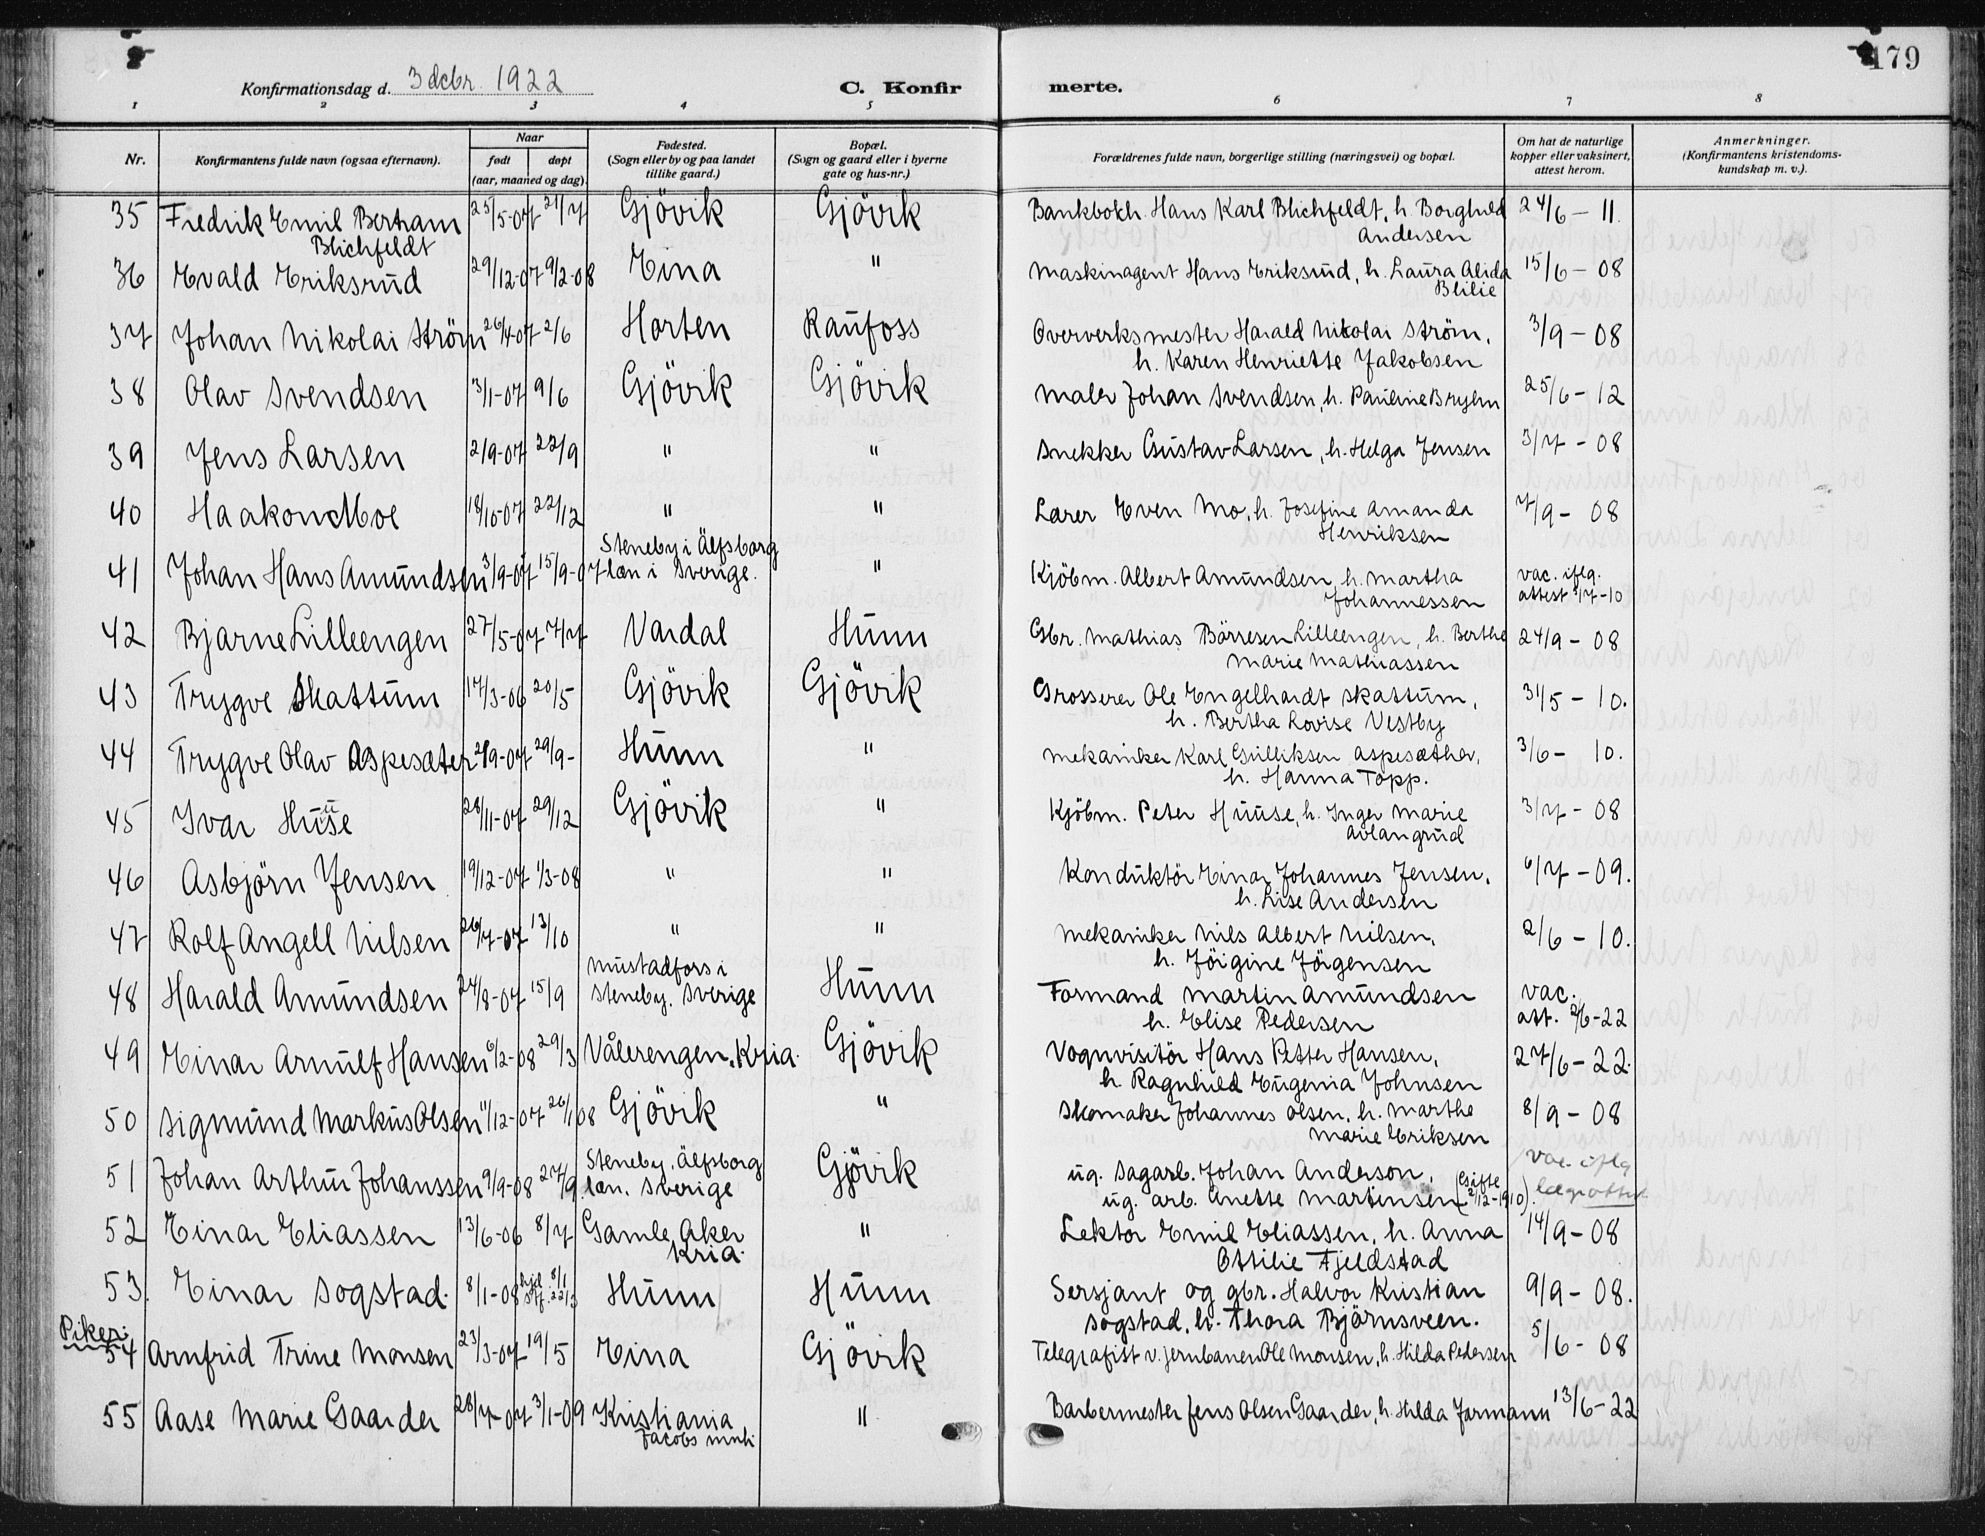 179
Konfirmationsdag d. 3 dcbr. 1922 C. Konfir merte.
1 2 3 4 5 6 7 8
Nr.
Konfirmantens fulde navn (ogsaa efternavn).
Naar
født døpt
(aar, maaned og dag).
Fødested.
(Sogn eller by og paa landet
tillike gaard.)
Bopæl.
(Sogn og gaard eller i byerne
gate og hus-nr.)
Forældrenes fulde navn, borgerlige stilling (næringsvei) og bopæl.
Om hat de naturlige
kopper eller vaksinert,
attest herom.
Anmerkninger.
(Konfirmantens kristendoms-
kundskap m. v.).
35 Fredrik Emil Bertram 25/5-07 21/7 Gjövik Gjövik Bankbokh. Hans Karl Blichfeldt, h. Borghild 24/6 - 11.
Blichfeldt Andersen
36 Evald Eriksrud 29/12-07 9/2-08 Eina " Maskinagent Hans Eriksrud, h. Laura Alida 15/6 - 08
Blilie
37 Johan Nikolai Ström 26/4-07 2/6 Horten Raufoss Oververksmester Harald Nikolai Ström, 3/9 - 08
h. Karen Henriette Jakobsen
38 Olav Svendsen 3/11-07 9/6 Gjövik Gjövik Maler Johan Svendsen, h. Pauline Bryhn 25/6 - 12
39 Jens Larsen 2/9-07 22/9 " " Snekker Gustav Larsen, h. Helga Jensen 3/7 - 08
40 Haakon Moe 18/10-07 22/12 " " Lærer Even Mo, h. Josefine Amanda 7/9 - 08
Henriksen
41 Johan Hans Amundsen 3/9-07 15/9-07 Steneby i Älfsborg
læn i Sverige. " Kjöbm. Albert Amundsen, h. Martha vac. iflg.
Johannessen attest 17-10
42 Bjarne Lilleengen 27/5-07 7/7 Vardal Hunn Gbr. Mathias Börresen Lilleengen, h. Berthe 24/9 - 08
Marie Mathiassen
43 Trygve Skattum 17/3-06 20/5 Gjövik Gjövik Grosserer Ole Engelhardt Skattum, 31/5 - 10.
h. Bertha Lovise Vestby
44 Trygve Olav Aspesæter 2/9-07 29/9- Hunn " Mekaniker Karl Gulliksen Aspesæther, 3/6 - 10.
h. Hanna Topp.
45 Ivar Huuse 28/11-07 29/12 Gjövik " Kjöbm. Peter Huuse, h. Inger Marie 3/7 - 08
Avlangrud
46 Asbjörn Jensen 19/12-07 1/3-08 " " Konduktör Einar Johannes Jensen, 6/7 - 09.
h. Lise Andersen
47 Rolf Angell Nilsen 26/7-07 13/10 " " Mekaniker Nils Albert Nilsen, 2/6 - 10.
h. Jörgine Jörgensen
48 Harald Amundsen 24/8-07 15/9 Mustadfors i
Steneby. Sverige Hunn Formand Martin Amundsen vac.
h. Elise Pedersen att. 2/6-22
49 Einar Arnulf Hansen 6/2-08 29/3 Vålerengen, Kria. Gjövik Vognvisitör Hans Petter Hansen, 27/6 - 22.
h. Ragnhild Eugenia Johnsen
50 Sigmund Markus Olsen 11/12-07 26/1 08 Gjövik " Skomaker Johannes Olsen, h. Marthe 8/9 - 08
Marie Eriksen
51 Johan Arthur Johanssen 9/9-08 27/9 Steneby, Älfsborg
læn. Sverige Gjövik ug. sagarb. Johan Anderson, vac. iflg
ug. arb. Anette Martinsen (Gifte 2/12-1910). lægeattest
52 Einar Eliassen 13/6-06 8/7 Gamle Aker
Kria. " Lektor Emil Eliassen, h. Anna 14/9 - 08
Ottilie Fjeldstad
53. Einar Sogstad. 8/1-08 hjd. 8/1
stf. 22/3 Hunn Hunn Sersjant og gbr. Halvor Kristian 9/9 - 08.
Sogstad, h. Thora Björnsveen.
Piker:
54 Arnfrid Trine Monsen 23/3-07 19/5 Eina Gjövik Telegrafist v. jernbanen Ole Monsen, h. Hilda Pedersen 5/6 - 08
55 Aase Marie Gaarder 28/7-07 3/1-09 Kristiania " Barbermester Jens Olsen Gaarder, h. Hilda Jarmann 13/6 - 22
Jacobs